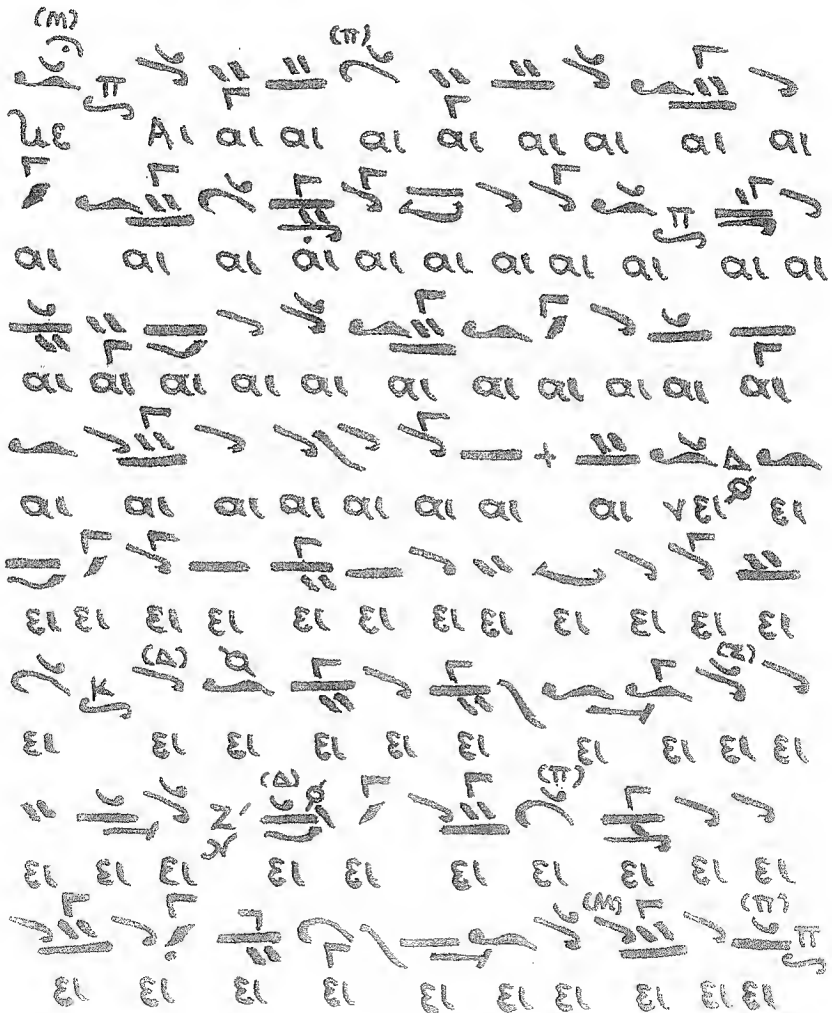 (Μ) Π (Π)
με Αι αι αι αι αι αι αι αι αι
Π
αι αι αι αι αι αι αι αι αι αι αι
αι αι αι αι αι αι αι αι αι αι αι
Δ
αι αι αι αι αι αι αι αι νει ει
ει ει ει ει ει ει ει ει ει ει ει ει
Κ (Δ) (Κ)
ει ει ει ει ει ει ει ει ει ει
Ν (Δ) (Π)
ει ει ει ει ει ει ει ει ει ει
(Μ) (Π) Π
ει ει ει ει ει ει ει ει ει ει